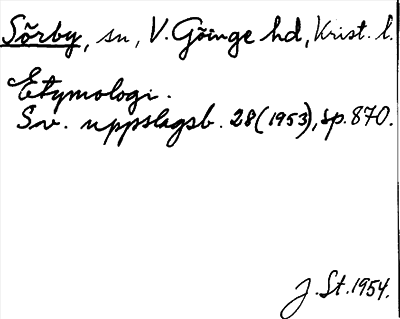 Sörby, sn, V. Göinge hd, Krist. l.
Etymologi.
Sv. uppslagsb. 28 (1953), sp. 870.
J. St. 1954.